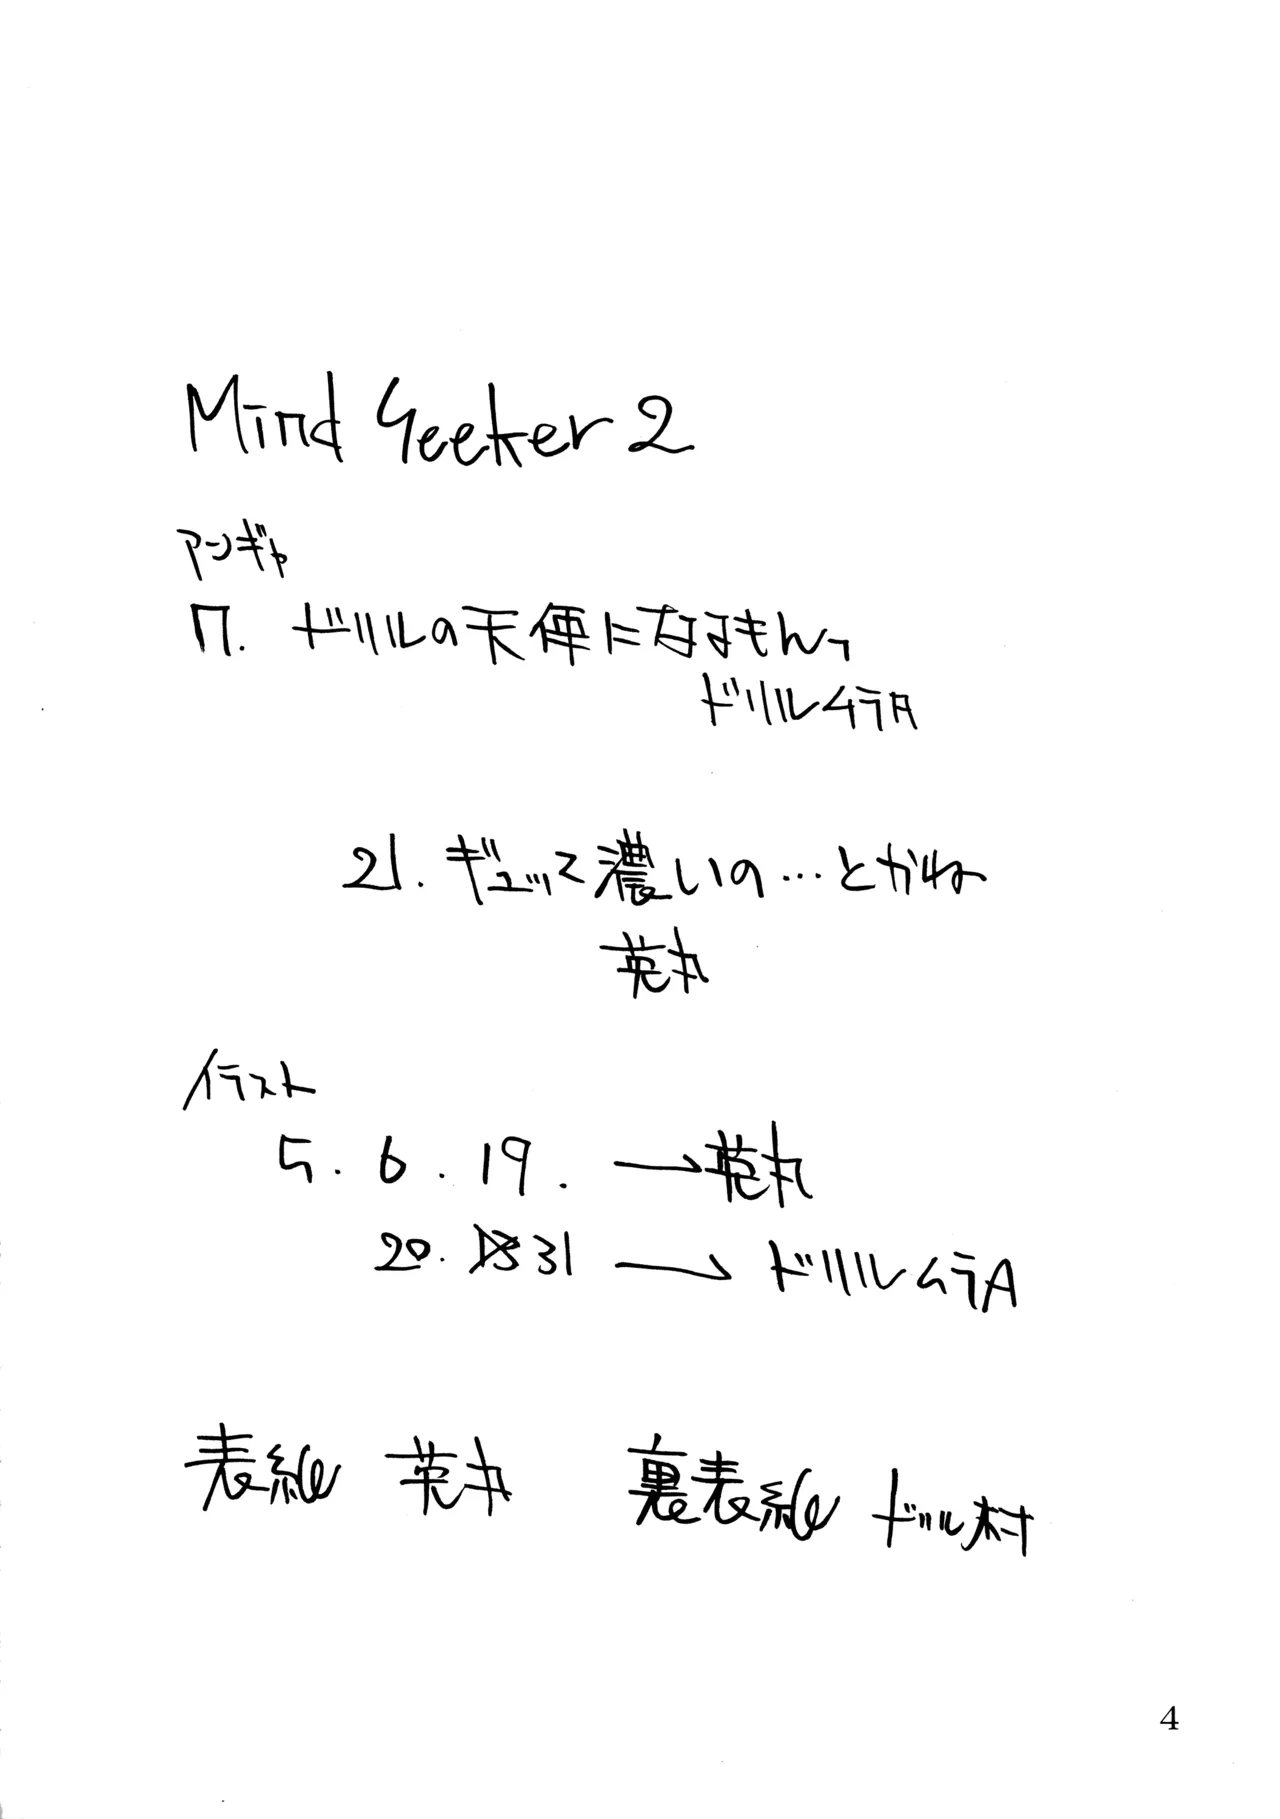 Mind Seeker 2
アンギャ
7. ドリルの天使になるもんっ
ドリルムラA
21. ギュッと濃いの…とかね
英丸
イラスト
5. 6. 19. →英丸
20. 31 → ドリルムラA
表紙 英丸 裏表紙 ドリル村
4